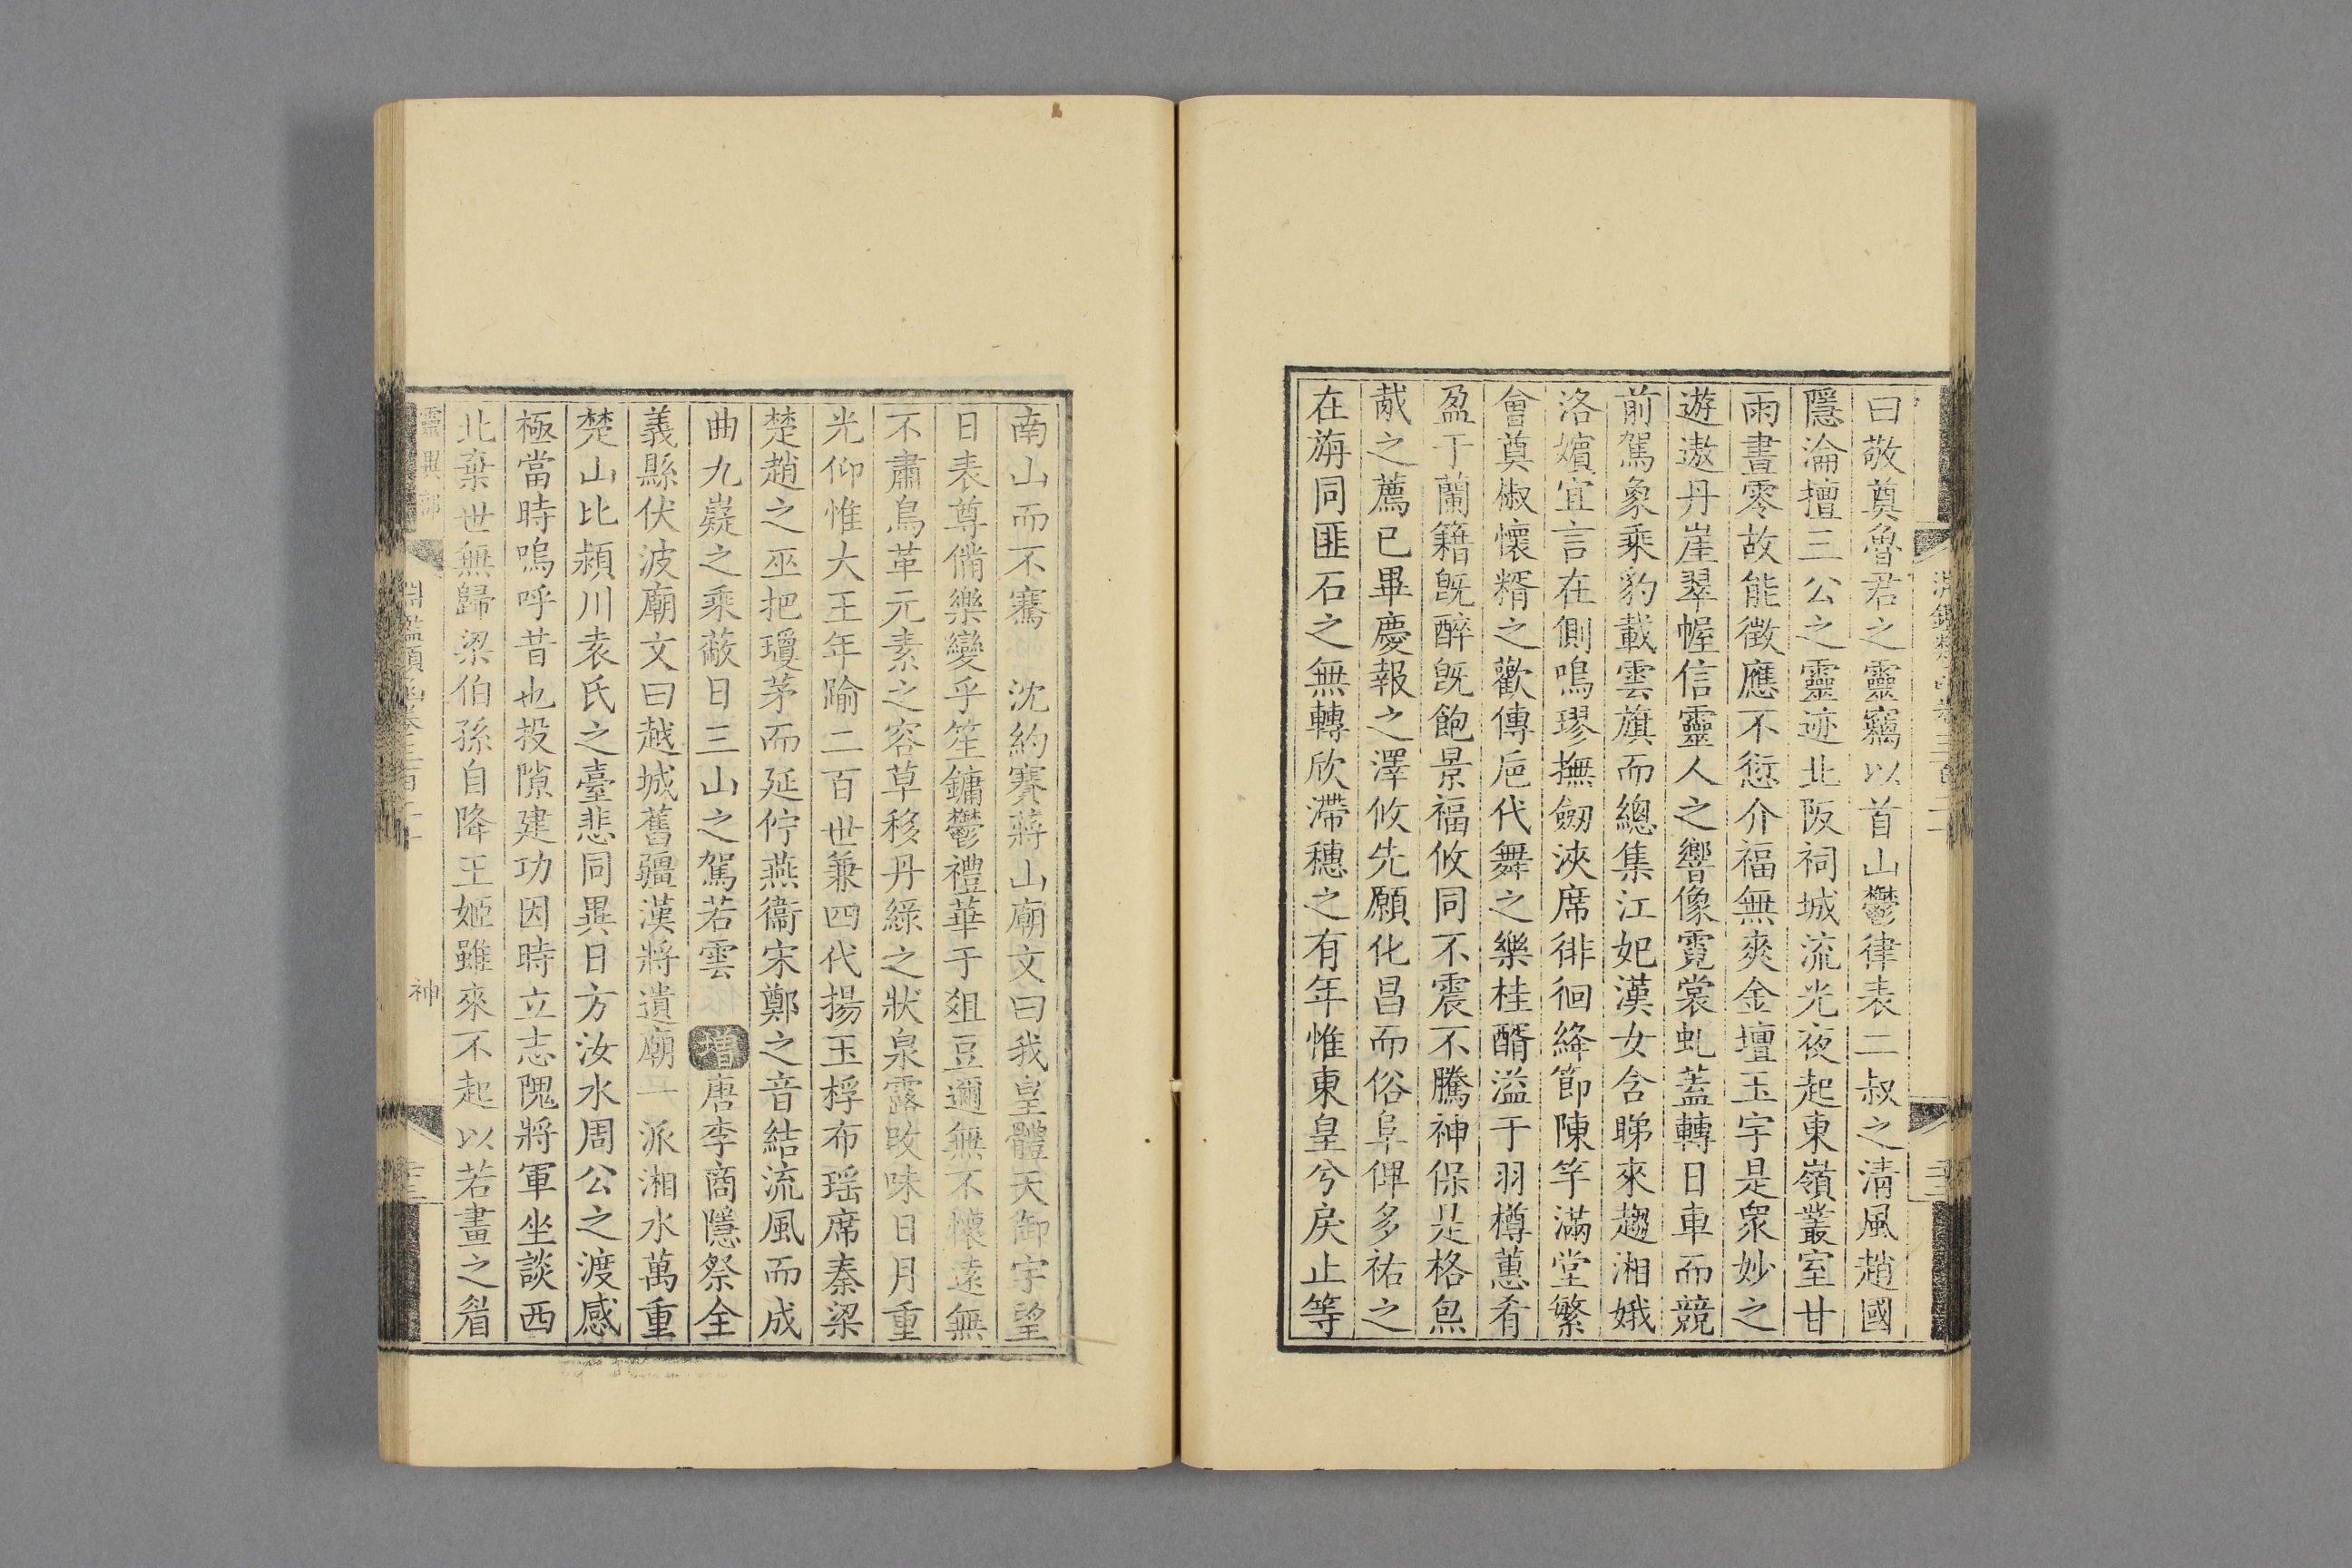 曰敬奠魯君之靈竊以首山鬱律表二叔之清風趙國
隱淪擅三公之靈迹北阪祠城流光夜起東嶺叢室甘
雨晝零故能徵應不愆介福無爽金壇玉宇是衆妙之
遊遨丹崖翠幄信靈人之響像霓裳虬蓋轉日車而競
前駕象乘豹載雲旗而總集江妃漢女含睇來趨湘娥
洛嬪宜言在側鳴璆撫劒浹席徘徊絳節陳竽滿堂繁
會奠椒懷糈之歡傳巵代舞之樂桂醑溢于羽樽蕙肴
盈于蘭籍旣醉旣飽景福攸同不震不騰神保是格魚
菽之薦已畢慶報之澤攸先願化昌而俗阜俾多祐之
在旃同匪石之無轉欣滯穗之有年惟東皇兮戾止等
南山而不騫 沈約賽蔣山廟文曰我皇體天御宇望
日表尊備樂變乎笙鏞鬱禮華于俎豆邇無不懷遠無
不肅鳥革元素之容草移丹綠之狀泉露改味日月重
光仰惟大王年踰二百世兼四代揚玉桴布瑶席秦梁
楚趙之巫把瓊茅而延佇燕衞宋鄭之音結流風而成
曲九嶷之乘蔽日三山之駕若雲 增唐李商隱祭全
義縣伏波廟文曰越城舊疆漢將遺廟一派湘水萬重
楚山比潁川袁氏之臺悲同異日方汝水周公之渡感
極當時嗚呼昔也投隙建功因時立志隗將軍坐談西
北棄世無歸梁伯孫自降王姬雖來不起以若畫之眉
靈異部 淵鑑類函卷三百二十 神